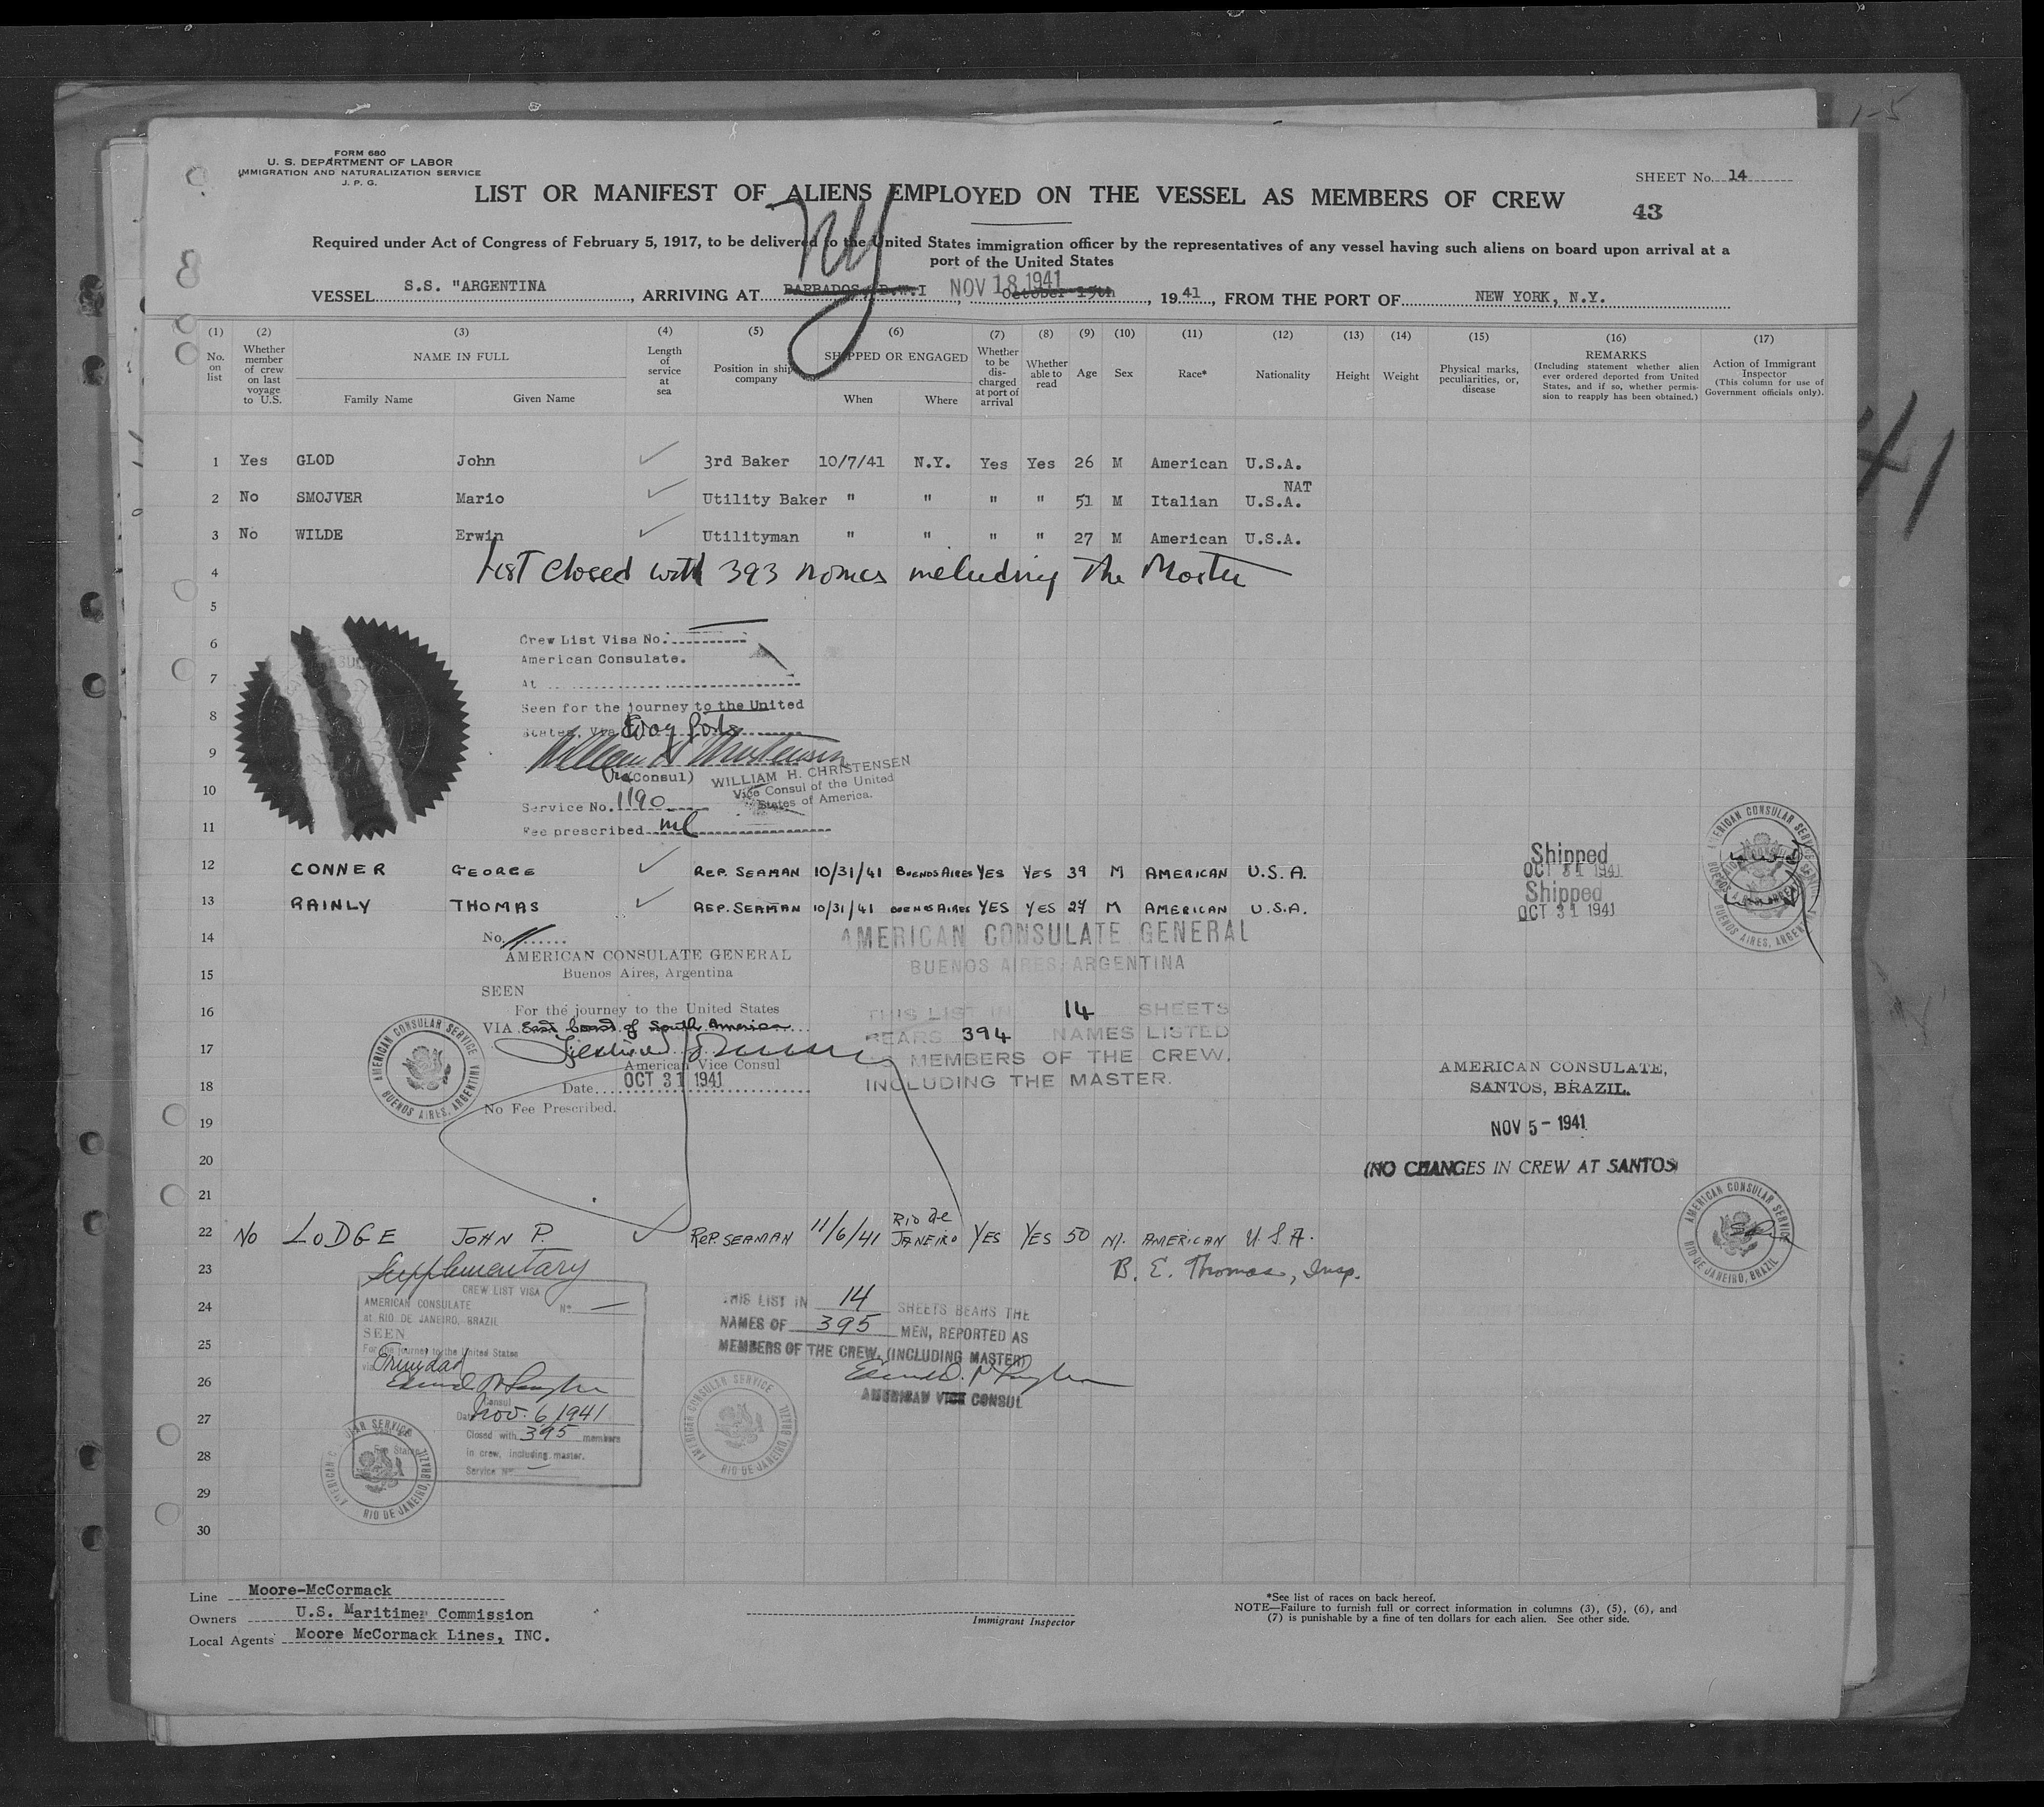 FORM 680
U. S. DEPARTMENT OF LABOR
IMMIGRATION AND NATURALIZATION SERVICE
J. P. G.
SHEET No. 14
LIST OR MANIFEST OF ALIENS EMPLOYED ON THE VESSEL AS MEMBERS OF CREW
43
Required under Act of Congress of February 5, 1917, to be delivered to the United States immigration officer by the representatives of any vessel having such aliens on board upon arrival at a
port of the United States
NY
VESSEL S.S. "ARGENTINA , ARRIVING AT BARBADOS, B.W.I , NOV 18 1941 October 19th , 19 41 , FROM THE PORT OF NEW YORK, N.Y.
(1) (2) (3) (4) (5) (6) (7) (8) (9) (10) (11) (12) (13) (14) (15) (16) (17)
No. on list
Whether member of crew on last voyage to U.S.
NAME IN FULL
Family Name
Given Name
Length of service at sea
Position in ship company
SHIPPED OR ENGAGED
When
Where
Whether to be discharged at port of arrival
Whether able to read
Age
Sex
Race*
Nationality
Height
Weight
Physical marks, peculiarities, or, disease
REMARKS
(Including statement whether alien ever ordered deported from United States, and if so, whether permission to reapply has been obtained.)
Action of Immigrant Inspector
(This column for use of Government officials only).
1 Yes GLOD John 3rd Baker 10/7/41 N.Y. Yes Yes 26 M American U.S.A.
2 No SMOJVER Mario Utility Baker " " " " 51 M Italian U.S.A. NAT
3 No WILDE Erwin Utilityman " " " " 27 M American U.S.A.
4 List closed with 393 names including the Master
5
6 Crew List Visa No.
American Consulate.
7 At
8 Seen for the journey to the United
States, via Way Ports
9
Vice (Consul) WILLIAM H. CHRISTENSEN
Vice Consul of the United
States of America.
10 Service No. 1190
11 Fee prescribed
12 CONNER GEORGE REP. SEAMAN 10/31/41 BUENOS AIRES YES YES 39 M AMERICAN U.S.A. Shipped OCT 31 1941
13 RAINLY THOMAS REP. SEAMAN 10/31/41 BUENOS AIRES YES YES 27 M AMERICAN U.S.A. Shipped OCT 31 1941
AMERICAN CONSULAR SERVICE
BUENOS AIRES, ARGENTINA
14 No.
AMERICAN CONSULATE GENERAL
BUENOS AIRES, ARGENTINA
AMERICAN CONSULATE GENERAL
15 Buenos Aires, Argentina
SEEN
16 For the journey to the United States
VIA East Coast of South America
17
American Vice Consul
18 Date OCT 31 1941
No Fee Prescribed.
AMERICAN CONSULAR SERVICE
BUENOS AIRES, ARGENTINA
THIS LIST IN 14 SHEETS
BEARS 394 NAMES LISTED
AS MEMBERS OF THE CREW.
INCLUDING THE MASTER.
AMERICAN CONSULATE,
SANTOS, BRAZIL.
19 NOV 5 - 1941
20 (NO CHANGES IN CREW AT SANTOS
21
22 No LODGE JOHN P. REP. SEAMAN 11/6/41 RIO DE JANEIRO YES YES 50 M. AMERICAN U.S.A.
AMERICAN CONSULAR SERVICE
RIO DE JANEIRO, BRAZIL
23 B. E. Thomas, Insp.
Supplementary
CREW LIST VISA
24 AMERICAN CONSULATE No.
at RIO DE JANEIRO, BRAZIL
25 SEEN
For the journey to the United States
via Trinidad
26
Consul
27 Date Nov. 6, 1941
Closed with 395 members
28 in crew, including master.
Service No.
AMERICAN CONSULAR SERVICE
RIO DE JANEIRO, BRAZIL
THIS LIST IN 14 SHEETS BEARS THE
NAMES OF 395 MEN, REPORTED AS
MEMBERS OF THE CREW, (INCLUDING MASTER)
AMERICAN VICE CONSUL
AMERICAN CONSULAR SERVICE
RIO DE JANEIRO, BRAZIL
29
30
Line Moore-McCormack
Owners U.S. Maritimer Commission
Local Agents Moore McCormack Lines, INC.
Immigrant Inspector
*See list of races on back hereof.
NOTE—Failure to furnish full or correct information in columns (3), (5), (6), and
(7) is punishable by a fine of ten dollars for each alien. See other side.